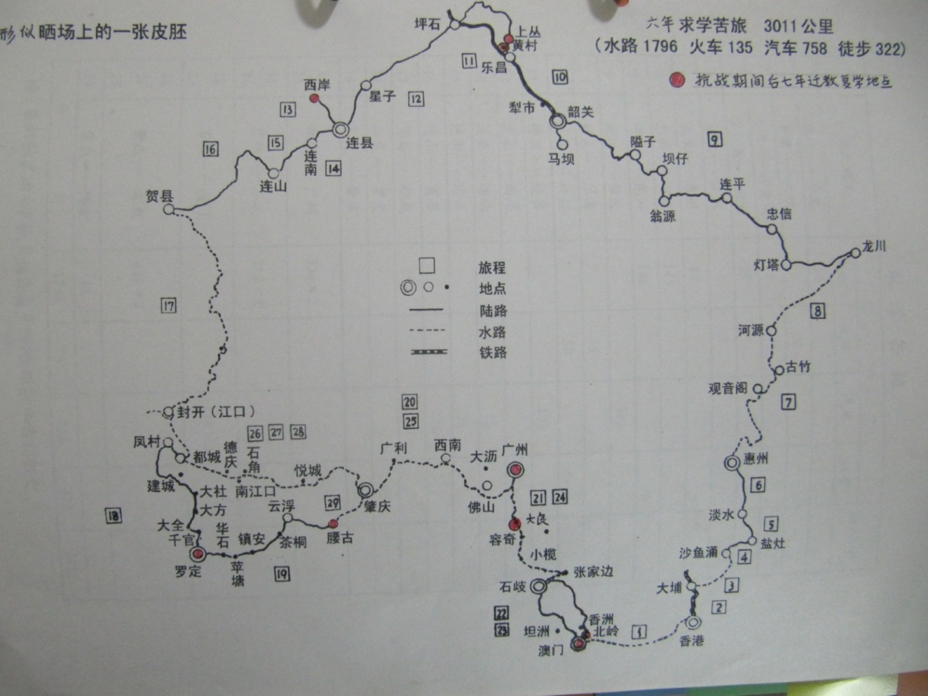 形似晒场上的一张皮胚
六年求学苦旅 3011公里
(水路1796 火车135 汽车758 徒步322)
抗战期间台七年迁教复学地点
坪石
上丛
黄村
乐昌
11
10
西岸
星子
12
13
犁市
韶关
连县
马坝
隘子
9
坝仔
16
15
连南
14
连山
贺县
翁源
连平
忠信
龙川
灯塔
旅程
地点
陆路
水路
铁路
17
8
河源
古竹
观音阁
7
封开(江口)
20
25
凤村
都城
德庆
26
27
28
石角
悦城
广利
西南
大沥
广州
惠州
建城
南江口
大杜
大方
云浮
29
肇庆
佛山
21
24
大良
6
淡水
18
大全
千官
华石
镇安
茶桐
腰古
容奇
5
盐灶
罗定
苹塘
19
小榄
沙鱼涌
4
石岐
张家边
大埔
3
2
22
23
坦洲
香洲
北岭
澳门
1
香港